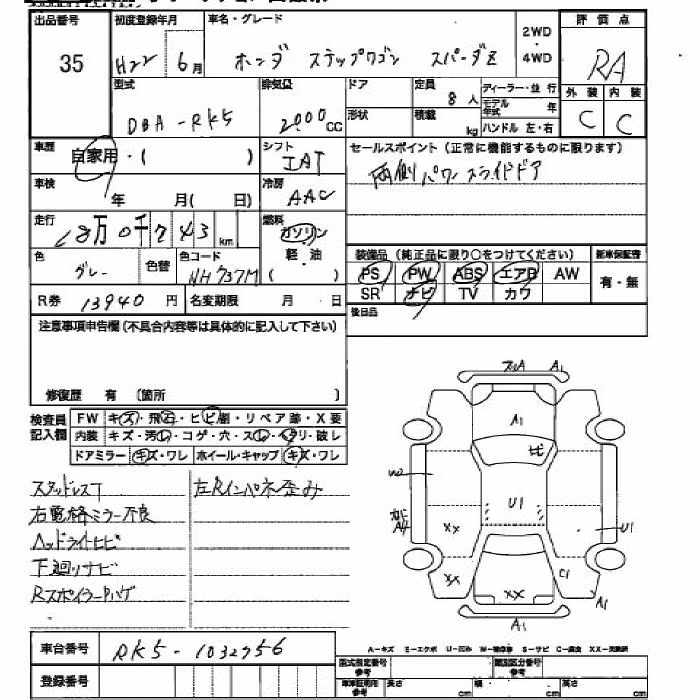 出品番号 初度登録年月 車名・グレード 評 価 点
35 H22 6月 ホンダ ステップワゴン スパーダZ 2WD・4WD RA
型式 排気量 ドア 定員 ディーラー・並 行 外 装 内 装
DBA-RK5 2000cc 8人 モデル年式 年 C C
形状 積載 kg ハンドル 左・右
車歴 自家用・( ) シフト IAT セールスポイント(正常に機能するものに限ります)
両側パワースライドドア
車検 年 月( 日) 冷房 AAC
走行 12万0千743km 燃料 ガソリン
軽・油
( )
色 グレー 色替 色コード NH737M
装備品(純正品に限り○をつけてください) 新車保証書
PS PW ABS エアB AW 有・無
SR ナビ TV カワ
R券 13940円 名変期限 月 日
後日品
注意事項申告欄(不具合内容等は具体的に記入して下さい)
修復歴 有 (箇所 )
検査員記入欄 FW キズ・飛石・ヒビ・リペア跡・X要
内装 キズ・汚レ・コゲ・穴・スレ・ヘタリ・破レ
ドアミラー キズ・ワレ ホイール・キャップ キズ・ワレ
スタッドレスT 左Rインパネ歪み
右電格ミラー不良
ヘッドライトヒビ
下廻りサビ
Rスポイラートハゲ
A1
A1
ヒ
W2
U1
A4
XX
U1
XX
C1
XX
A1
A1
車台番号 RK5-1032756
A-キズ E-エクボ U-凹み W-補修跡 S-サビ C-腐食 XX-交換済
登録番号
型式指定番号 参考 類別区分番号 参考
車庫証明用 参考 長さ cm 幅 cm 高さ cm